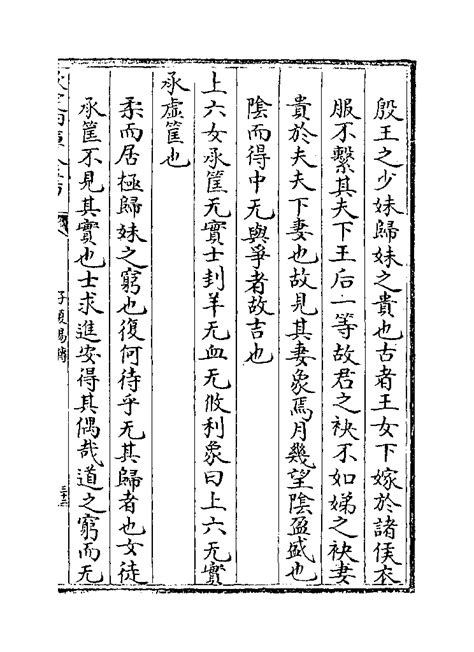 殷王之少妹歸妹之貴也古者王女下嫁於諸侯衣
服不繫其夫下王后一等故君之袂不如娣之袂妻
貴於夫夫下妻也故見其妻象焉月幾望陰盈盛也
陰而得中无與爭者故吉也
上六女承筐无實士刲羊无血无攸利象曰上六无實
承虛筐也
柔而居極歸妹之窮也復何待乎无其歸者也女徒
承筐不見其實也士求進安得其偶哉道之窮而无
子夏易傳